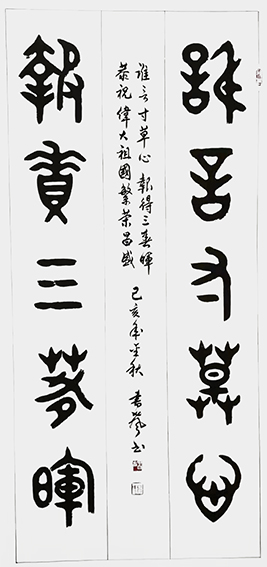 誰言寸草心
誰言寸草心 報得三春暉
恭祝偉大祖國繁榮昌盛
己亥年金秋 書
報得三春暉